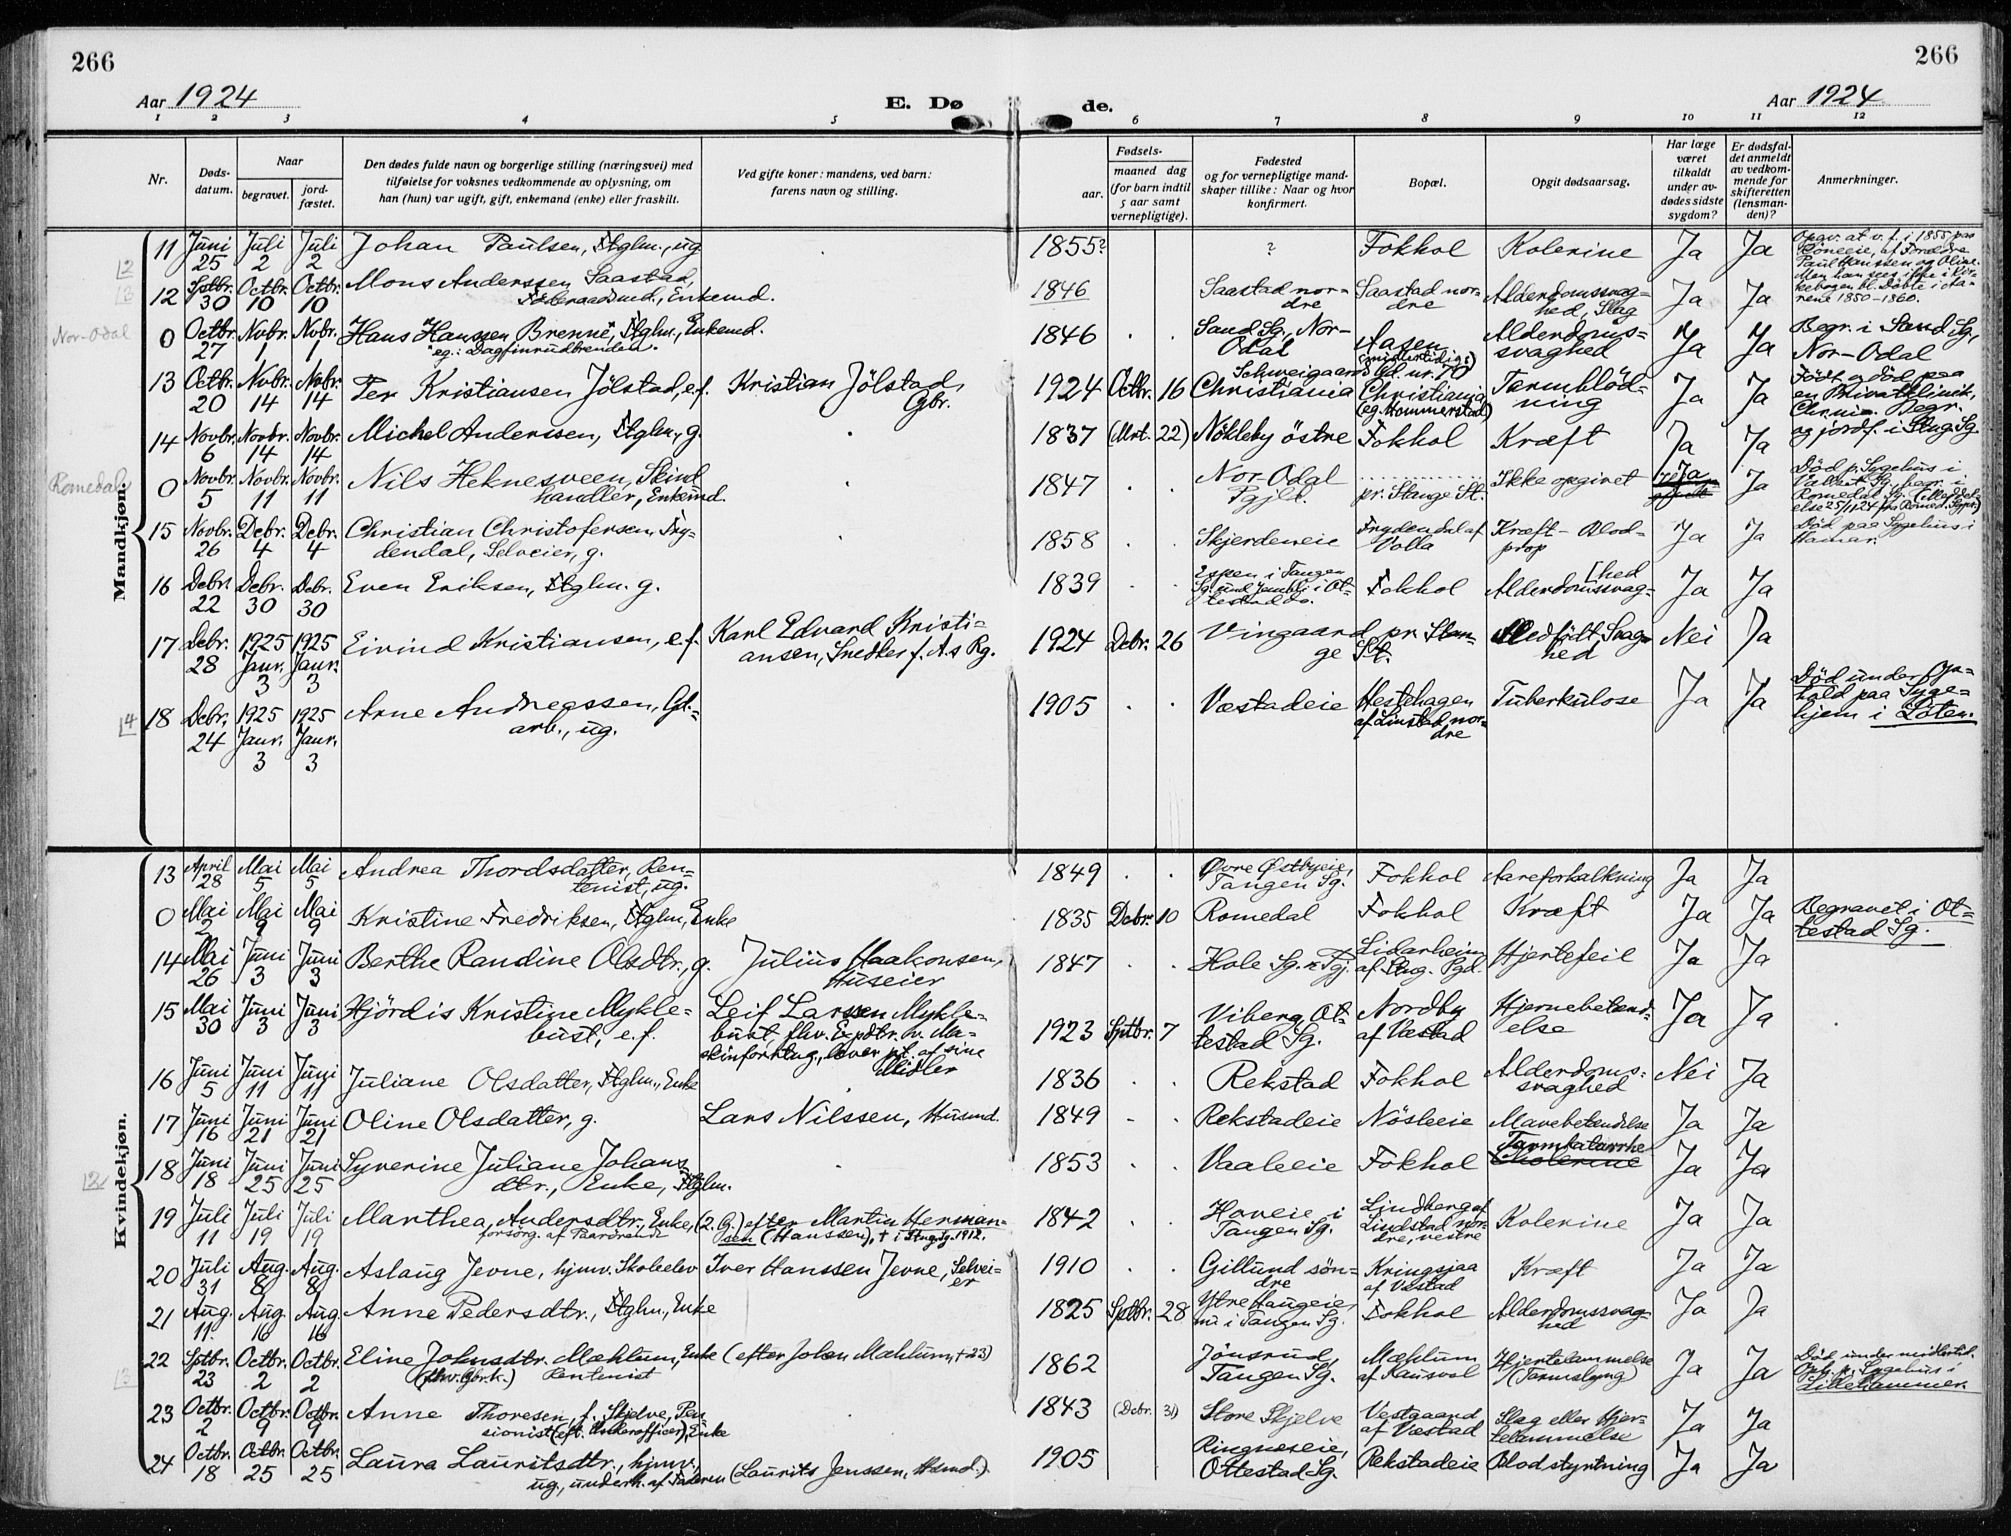 266
266
Aar 1924
E. Dø
de.
Aar 1924
1 2 3 4 5 6 7 8 9 10 11 12
Nr.
Døds-
datum.
Naar
begravet.
jord-
fæstet.
Den dødes fulde navn og borgerlige stilling (næringsvei) med
tilføielse for voksnes vedkommende av oplysning, om
han (hun) var ugift, gift, enkemand (enke) eller fraskilt.
Ved gifte koner: mandens, ved barn:
farens navn og stilling.
Fødsels-
aar.
maaned dag
(for barn indtil
5 aar samt
vernepligtige).
Fødested
og for vernepligtige mand-
skaper tillike: Naar og hvor
konfirmert.
Bopæl.
Opgit dødsaarsag.
Har læge
været
tilkaldt
under av-
dødes sidste
sygdom?
Er dødsfal-
det anmeldt
av vedkom-
mende for
skifteretten
(lensman-
den)?
Anmerkninger.
Mandkjøn.
11 Juni 25 Juli 2 Juli 2 Johan Paulsen, Ftglm., ug 1855? ? Fokhol Kolerine Ja Ja
Opgv. at v. f. i 1855 paa
Paul Hanssen og Oline.
Men han sees ikke i Kir-
kebogen bl. Døbte i Aa-
rene 1850-1860.
12 Sptbr. 30 Octbr. 10 Octbr. 10 Mons Anderssen Saastad,
Føderaadsmd., Enkemd. 1846 Saastad nor-
dre Saastad nor-
dre Alderdomssvag-
hed, Slag Ja Ja
Nor-Odal
0 Octbr. 27 Novbr. 1 Novbr. 1 Hans Hanssen Brenne, Ftglm., Enkemd.
eg.: Dagfinrudbrenden. 1846 Sand Sg., Nor-
Odal Aasen
(midlertidig:) Alderdoms-
svaghed Ja Ja Begr. i Sand Sg,
Nor-Odal
13 Octbr. 20 Novbr. 14 Novbr. 14 Per Kristiansen Jølstad, e.f. Kristian Jølstad,
Gbr. 1924 Octbr. 16 Christiania
Schweigaards Gd. nr. 70
Christiania
(eg. Hommerstad) Tarmblød-
ning Ja Ja Født og død paa
en Privatklinik,
Chrnia. Begr.
og jordf. i Stng. Sg.
14 Novbr. 6 Novbr. 14 Novbr. 14 Michel Anderssen, Ftglm., g. 1837 (Mrt. 22) Nökleby östre Fokhol Kræft Ja Ja
Romedal
0 Novbr. 5 Novbr. 11 Novbr. 11 Nils Heknesveen, Skind
handler, Enkemd. 1847 Nor-Odal
Pgjld. pr. Stange St. Ikke opgivet Ja Ja Død p. Sygehus i
Vallset Sg., begr. i
Romedal Sg. (Meddel-
else 25/11 24 fra Romed. Sgpr.)
15 Novbr. 26 Debr. 4 Debr. 4 Christian Christofersen, Fry-
dendal, Selveier, g. 1858 Skjerdeneie Frydendal af
Volla Kræft - Blod-
prop Ja Ja Død paa Sygehus i
Hamar.
16 Debr. 22 Debr. 30 Debr. 30 Even Eriksen, Ftglm. g. 1839 Espen i Tangen
Sg. Fokhol Alderdomssvag-
[hed Ja Ja
17 Debr. 28 1925 Janr. 3 1925 Janr. 3 Eivind Kristiansen, e.f. Karl Edvard Kristi-
ansen, Snedker f. A.s Rg. 1924 Debr. 26 Vingaard pr. Stan-
ge St. Medfødt Svag-
hed Nei Ja
18 Debr. 24 1925 Janr. 3 1925 Janr. 3 Arne Andreassen, Gt.-
arb., ug. 1905 Væstadeie Hestehagen
af Linstad nor-
dre Tuberkulose Ja Ja Død under Op-
hold paa Syge-
hjem i Löten.
Kvindekjøn.
13 April 28 Mai 5 Mai 5 Andrea Thordsdatter, Ren-
tenist, ug. 1849 Øvre Østbyeie,
Tangen Sg. Fokhol Aareforkalkning Ja Ja
0 Mai 2 Mai 9 Mai 9 Kristine Fredriksen, Ftglm., Enke 1835 Debr. 10 Romedal Fokhol Kræft Ja Ja Begravet i Ot-
testad Sg.
14 Mai 26 Juni 3 Juni 3 Berthe Randine Olsdtr., g. Julius Haakonsen,
Huseier 1847 Hole Sg. & Pgj. Lidarheim
af Stng. Pgd. Hjertefeil Ja Ja
15 Mai 30 Juni 3 Juni 3 Hjördis Kristine Mykle-
bust, e.f. Leif Larssen Mykle-
bust, fhv. Expdtr. v. Ma-
skinforrtng., lever pt. af sine
Midler 1923 Sptbr. 7 Viberg, Ot-
testad Sg. Nordby
af Væstad Hjernebetænd-
else Ja Ja
16 Juni 5 Juni 11 Juni 11 Juliane Olsdatter, Ftglm., Enke 1836 Rekstad Fokhol Alderdoms-
svaghed Nei Ja
17 Juni 16 Juni 21 Juni 21 Oline Olsdatter, g. Lars Nilssen, Husmd. 1849 Rekstadeie Nösleeie Mavebetændelse Ja Ja
18 Juni 18 Juni 25 Juni 25 Syverine Juliane Johans
dtr., Enke, Ftglm. 1853 Vaaleeie Fokhol Tarmkatarrhe
Cholerine Ja Ja
19 Juli 11 Juli 19 Juli 19 Marthea Andersdtr., Enke, (2. G.) efter Martin Herman-
forsörg. af Paarörende sen (Hanssen), † i Stng. Sg. 1912. 1842 Hoveie i
Tangen Sg. Lindberg af
Lindstad nor-
dre, vestre Kolerine Ja Ja
20 Juli 31 Aug. 8 Aug. 8 Aslaug Jevne, hjmv. Skoleelev Iver Hanssen Jevne, Selvei-
er 1910 Gillund søn-
dre Kringsjaa
af Væstad Kræft Ja Ja
21 Aug. 11. Aug. 16 Aug. 16 Anne Pedersdtr., Ftglm., Enke 1825 Sptbr. 28 Ytre Haugeie,
nu i Tangen Sg. Fokhol Alderdomssvag-
hed Ja Ja
22 Sptbr. 23 Octbr. 2 Octbr. 2 Eline Johnsdtr. Mæhlum, Enke (efter Johan Mæhlum, † 23)
(fhv. Gbr.k.) Rentenist 1862 Jönsrud,
Tangen Sg. Mæhlum
af Hansvol Hjertelammelse
(Tarmslyng) Ja Ja Død under midlertid.
Oph. p. Sygehus i
Lillehammer.
23 Octbr. 2 Octbr. 9 Octbr. 9 Anne Thoresen, f. Skjelve, Pen-
sionist (eft. Underofficer), Enke 1843 (Debr. 31) Store Skjelve Vestgaard
af Væstad Slag eller Hjer-
telammelse Ja Ja
24 Octbr. 18 Octbr. 25 Octbr. 25 Laura Lauritsdtr., hjmv.,
ug., underh. af Faderen (Laurits Jenssen, Husmd.) 1905 Ringneseie,
Ottestad Sg. Rekstadeie Blodstyrtning Ja Ja